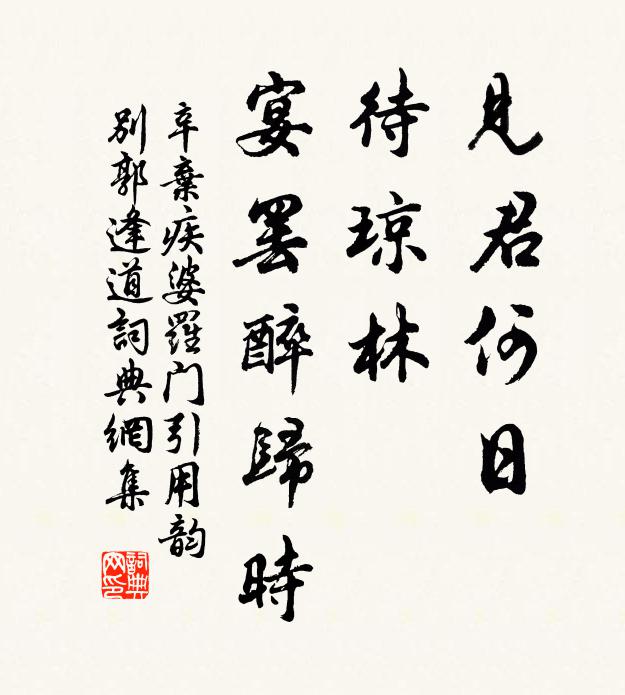 見君何日
待琼林
宴罷醉歸時
辛棄疾婆羅门引用韵
別郭逢道詞典網集
詞典
网印